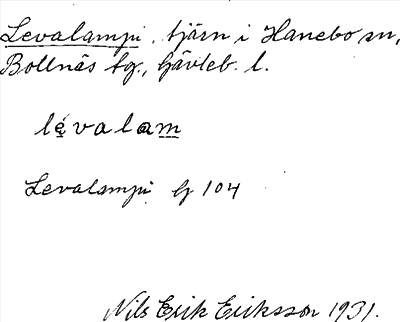 Levalampi, tjärn i Hanebo sn,
Bollnäs tg., Gävleb. l.
lévalam
Levalampi G 104
Nils Erik Eriksson 1931.